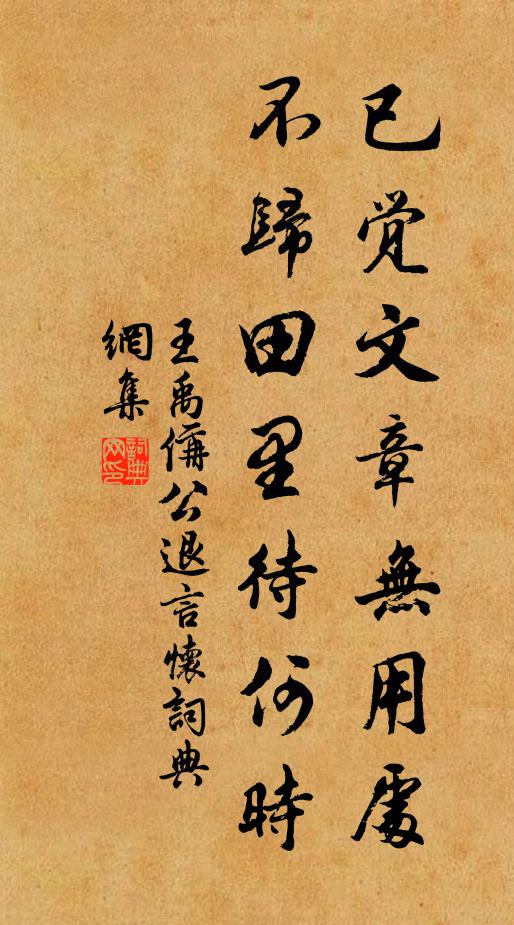 已觉文章無用處
不歸田里待何時
王禹偁公退言懷詞典
網集
詞典
网印